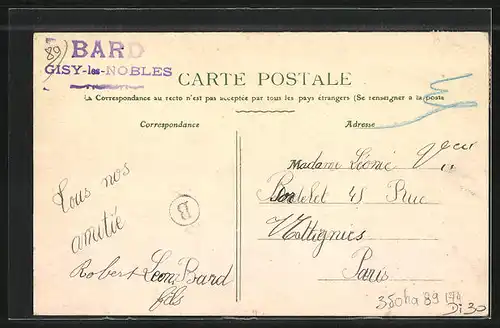 89
BARD
GISY-les-NOBLES
CARTE POSTALE
La Correspondance au recto n'est pas acceptée par tous les pays étrangers (Se renseigner à la poste
Correspondance
Adresse
Madame Léonie
45 Rue
Paris
Tous nos
amitié
B
Robert Léon Bard
fils
89
Di 30